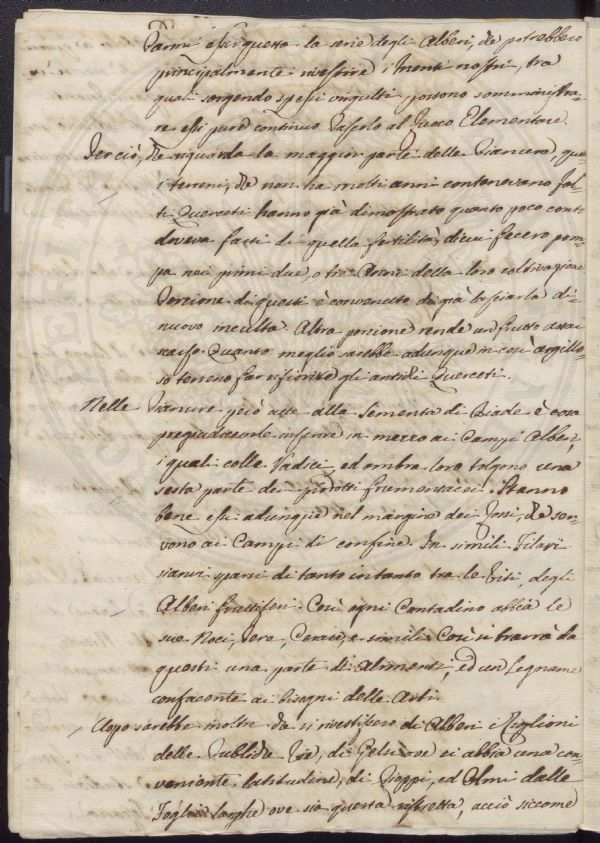 Parmi esser questa la serie degli Alberi, che potrebbero
principalmente rivestire i Monti nostri, tra
quali sorgendo spessi virgulti possono somministra-
re essi pure continuo Pascolo al fuoco Elementare.
Perciò, che riguarda la maggior parte delle Pianure, que-
i terreni, che non ha molti anni contenevano fol-
ti Querceti hanno già dimostrato quanto poco conto
doveva farsi di quella fertilità, di cui fecero pom-
pa nei primi due, o tre Anni della loro coltivazione
Porzione di questi è convenuto di già lasciarla di
nuovo inculta. Altra porzione rende un frutto assai
scarso. Quanto meglio sarebbe adunque in così argillo-
so terreno far rifiorire gli antichi Querceti.
Nelle Pianure però atte alla Sementa di Biade è cosa
pregiudicevole inserire in mezzo ai Campi Alberi,
i quali colle Radici, ed ombra loro tolgono una
sesta parte dei prodotti frumentacei. Stanno
bene essi adunque nel margine dei fossi, che ser-
vono ai Campi di confine. In simili Filari
sianvi sparsi di tanto in tanto tra le Viti, degli
Alberi fruttiferi. Così ogni Contadino abbia le
sue Noci, Pera, Cerase, e simili. Così si trarrà da
questi una parte di alimenti, ed un Legname
confacente ai bisogni delle Arti.
Uopo sarebbe inoltre che si rivestissero di Alberi i Ciglioni
delle Pubbliche Vie, di Gelsi ove vi abbia una con-
veniente latitudine, di Pioppi, ed Olmi dalle
Foglie larghe ove sia questa ristretta, acciò siccome